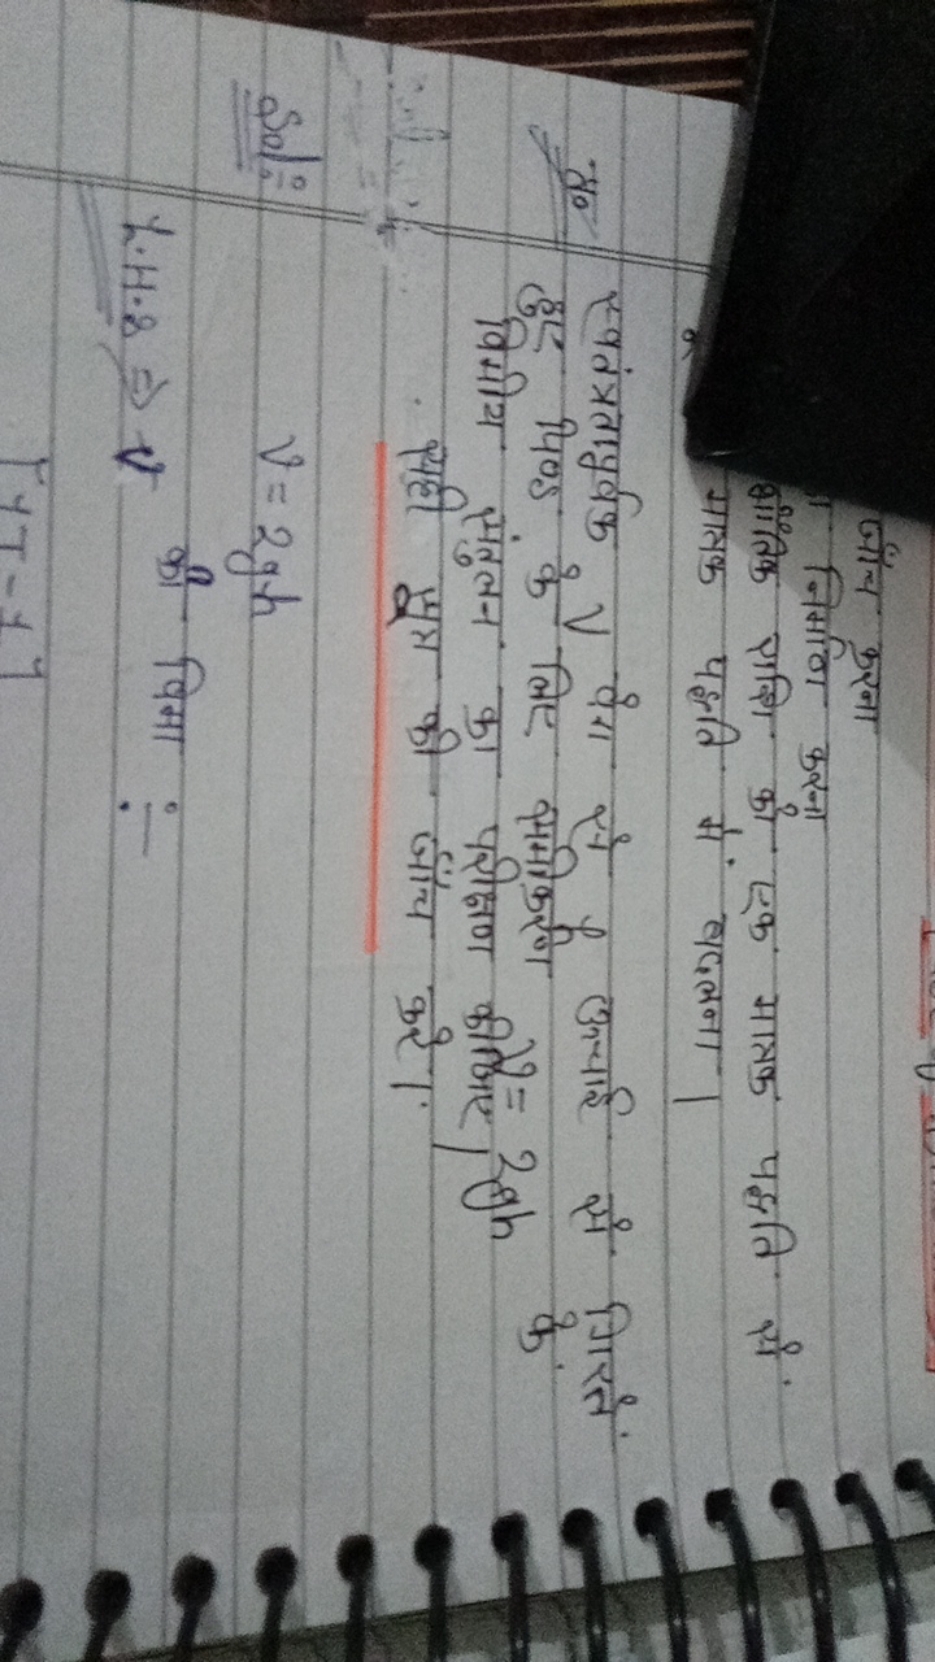 जाँच करना
निर्माण करना
भौतिक राशि को एक मात्रक पद्धति से
मात्रक पद्धति में बदलना |
स्वतंत्रतापूर्वक v वेग से h ऊँचाई से गिरते
हुए पिण्ड के लिए समीकरण v = 2gh के
विमीय संतुलन का परीक्षण कीजिए |
सही सूत्र की जाँच करे |
Sol:-
v = 2gh
L.H.S ⇒ v की विमा :-